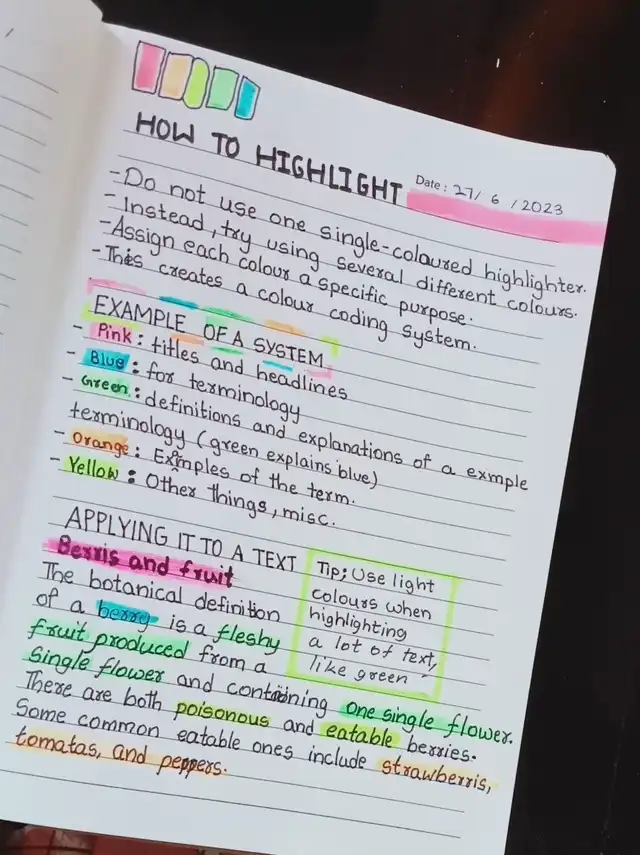 HOW TO HIGHLIGHT
Date: 27/ 6 /2023
-Do not use one single-coloured highlighter.
-Instead, try using several different colours.
-Assign each colour a specific purpose.
-This creates a colour coding system.
EXAMPLE OF A SYSTEM
- Pink: titles and headlines
- Blue: for terminology
- Green: definitions and explanations of a exmple
terminology (green explains blue)
- Orange: Exmples of the term.
- Yellow: Other things, misc.
APPLYING IT TO A TEXT
Berris and fruit
The botanical definition
of a berry is a fleshy
fruit produced from a
Single flower and containing one single flower.
There are both poisonous and eatable berries.
Some common eatable ones include strawberris,
tomatas, and peppers.
Tip; Use light
colours when
highlighting
a lot of text,
like green